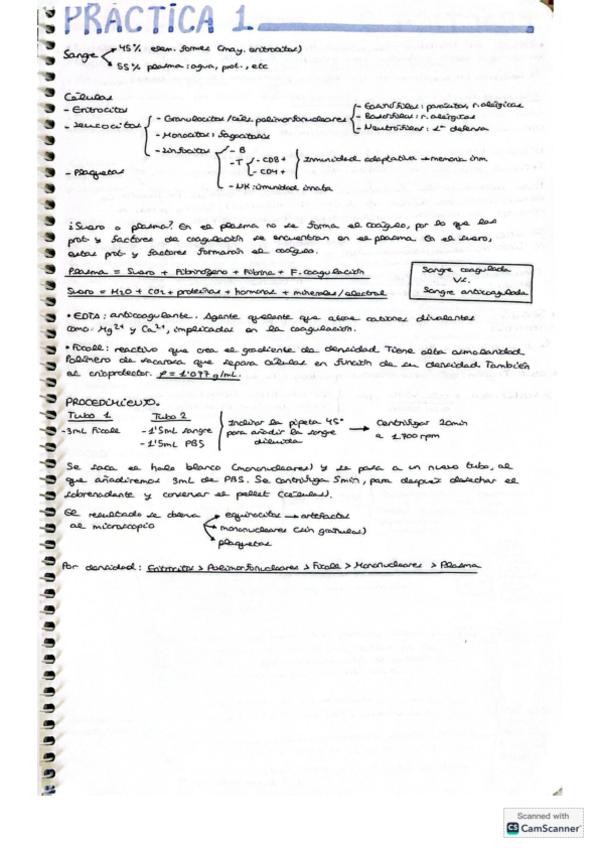 PRÁCTICA 1.
Sangre
45% elem. formes (may. eritrocitos)
55% plasma: agua, prot., etc
Células
- Eritrocitos
- Leucocitos
- Granulocitos / céls. polimorfonucleares
- Eosinófilos: parásitos, r. alérgicas
- Basófilos: r. alérgicas
- Neutrófilos: 1ª defensa
- Monocitos: fagocitosis
- Linfocitos
- B
- T
- CD8+
- CD4+
Inmunidad adaptativa → memoria inm
- NK: inmunidad innata
- Plaquetas
¿Suero o plasma? En el plasma no se forma el coágulo, por lo que las
prot y factores de coagulación se encuentran en el plasma. En el suero,
estas prot y factores formarán el coágulo.
Plasma = Suero + Fibrinógeno + Fibrina + F. coagulación
Suero = H2O + CO2 + proteínas + hormonas + minerales/electrol
Sangre coagulada
vs.
Sangre anticoagulada
• EDTA: anticoagulante. Agente quelante que atrae cationes divalentes
como: Mg2+ y Ca2+, implicados en la coagulación.
• Ficoll: reactivo que crea el gradiente de densidad. Tiene alta osmolaridad
Polímero de sacarosa que separa células en función de su densidad. También
es crioprotector. ρ = 1'077 g/mL.
PROCEDIMIENTO.
Tubo 1
- 3mL Ficoll
Tubo 2
- 1'5mL sangre
- 1'5mL PBS
Inclinar la pipeta 45°
para añadir la sangre
diluida
→ Centrifugar 20min
a 1.700 rpm
Se saca el halo blanco (mononucleares) y se pasa a un nuevo tubo, al
que añadiremos 3mL de PBS. Se centrifuga 5min, para después desechar el
sobrenadante y conservar el pellet (células).
El resultado se observa
al microscopio
equinocitos → artefactos
mononucleares (sin gránulos)
plaquetas
Por densidad: Eritrocitos > Polimorfonucleares > Ficoll > Mononucleares > Plasma
Scanned with
CS CamScanner